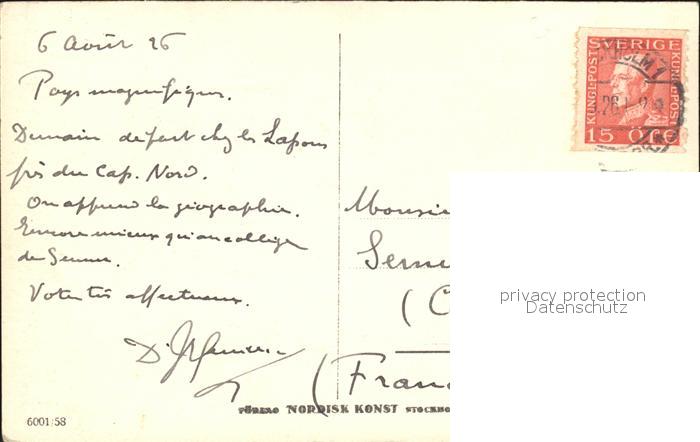 6 Août 26
Pays magnifique.
Demain départ chez les Lapons
près du Cap. Nord.
On apprend la géographie.
Encore mieux qu'au collège
de
Votre très affectueux.
Dr
Monsie
(C
(Franc
SVERIGE
KUNGL·POST
KUNGL·POST
15 ÖRE
HOLM 1
26
privacy protection
Datenschutz
FÖRLAG NORDISK KONST STOCKHO
6001/58